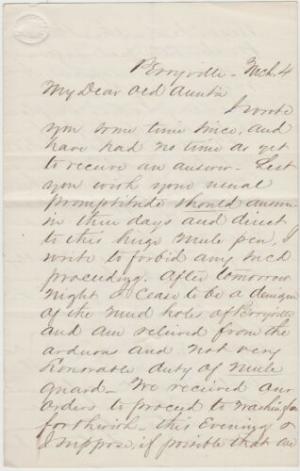 Perryville - Mch. 4
My Dear old Auntie
I wrote
you some time since, and
have had no time as yet
to receive an answer. Lest
you with your usual
promptitude should answer
in three days and direct
to this huge mule pen, I
write to forbid any such
proceeding. After tomorrow
night I cease to be a denizen
of the mud holes of Perryville
and am relieved from the
arduous and not very
honorable duty of mule
guard - We received our
orders to proceed to Washington
forthwith - this Evening &
I suppose, if possible that we